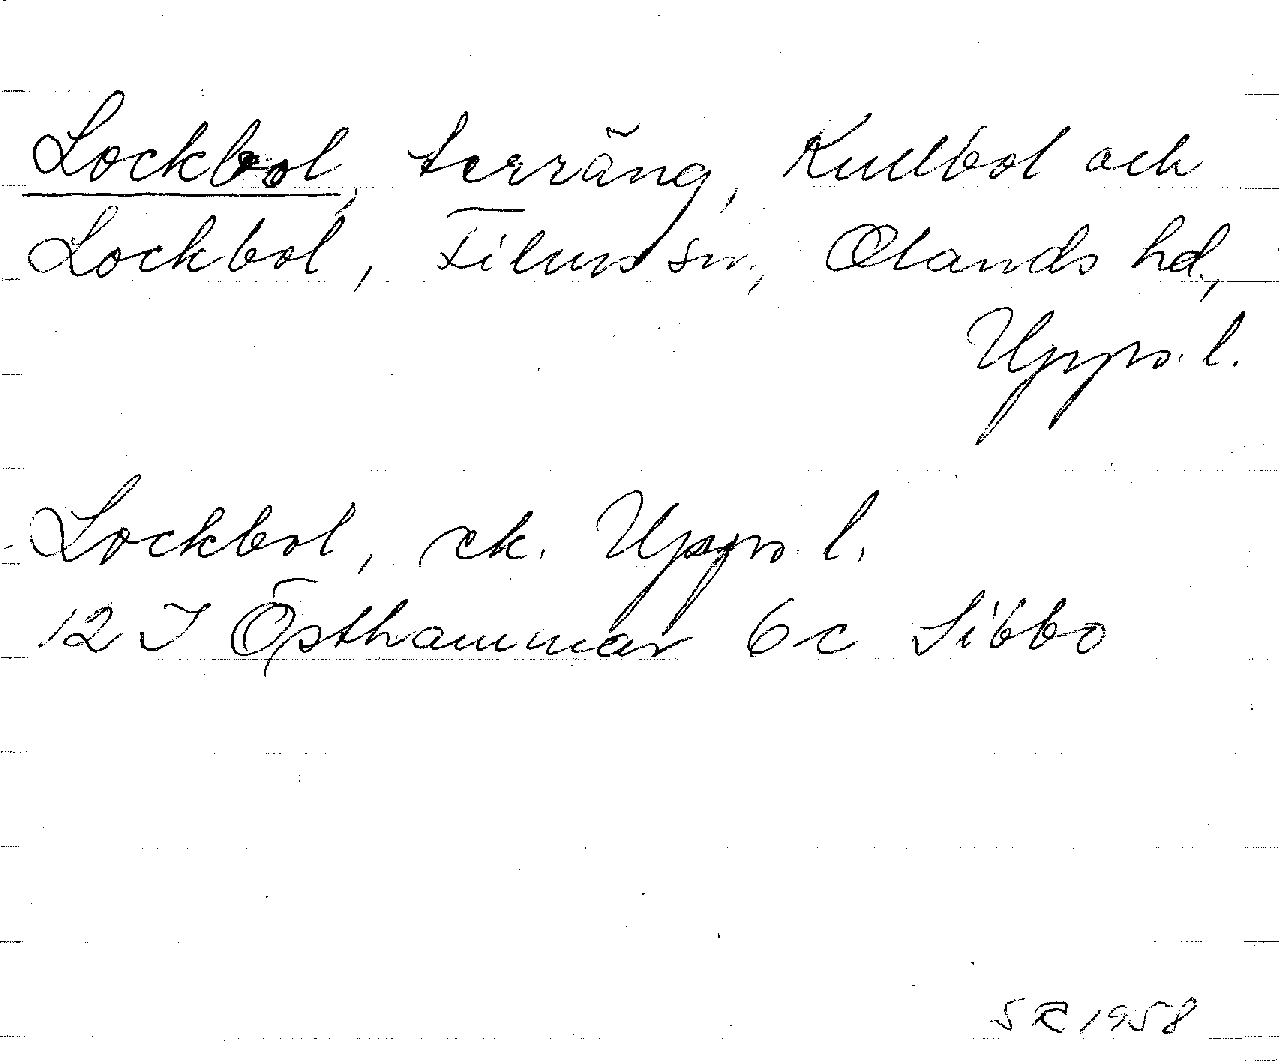 Lockbol, terräng, Kullbol och
Lockbol, Films sn, Olands hd,
Upps. l.
Lockbol, ek. Upps l.
12 I Östhammar 6c Sibbo
SR 1958